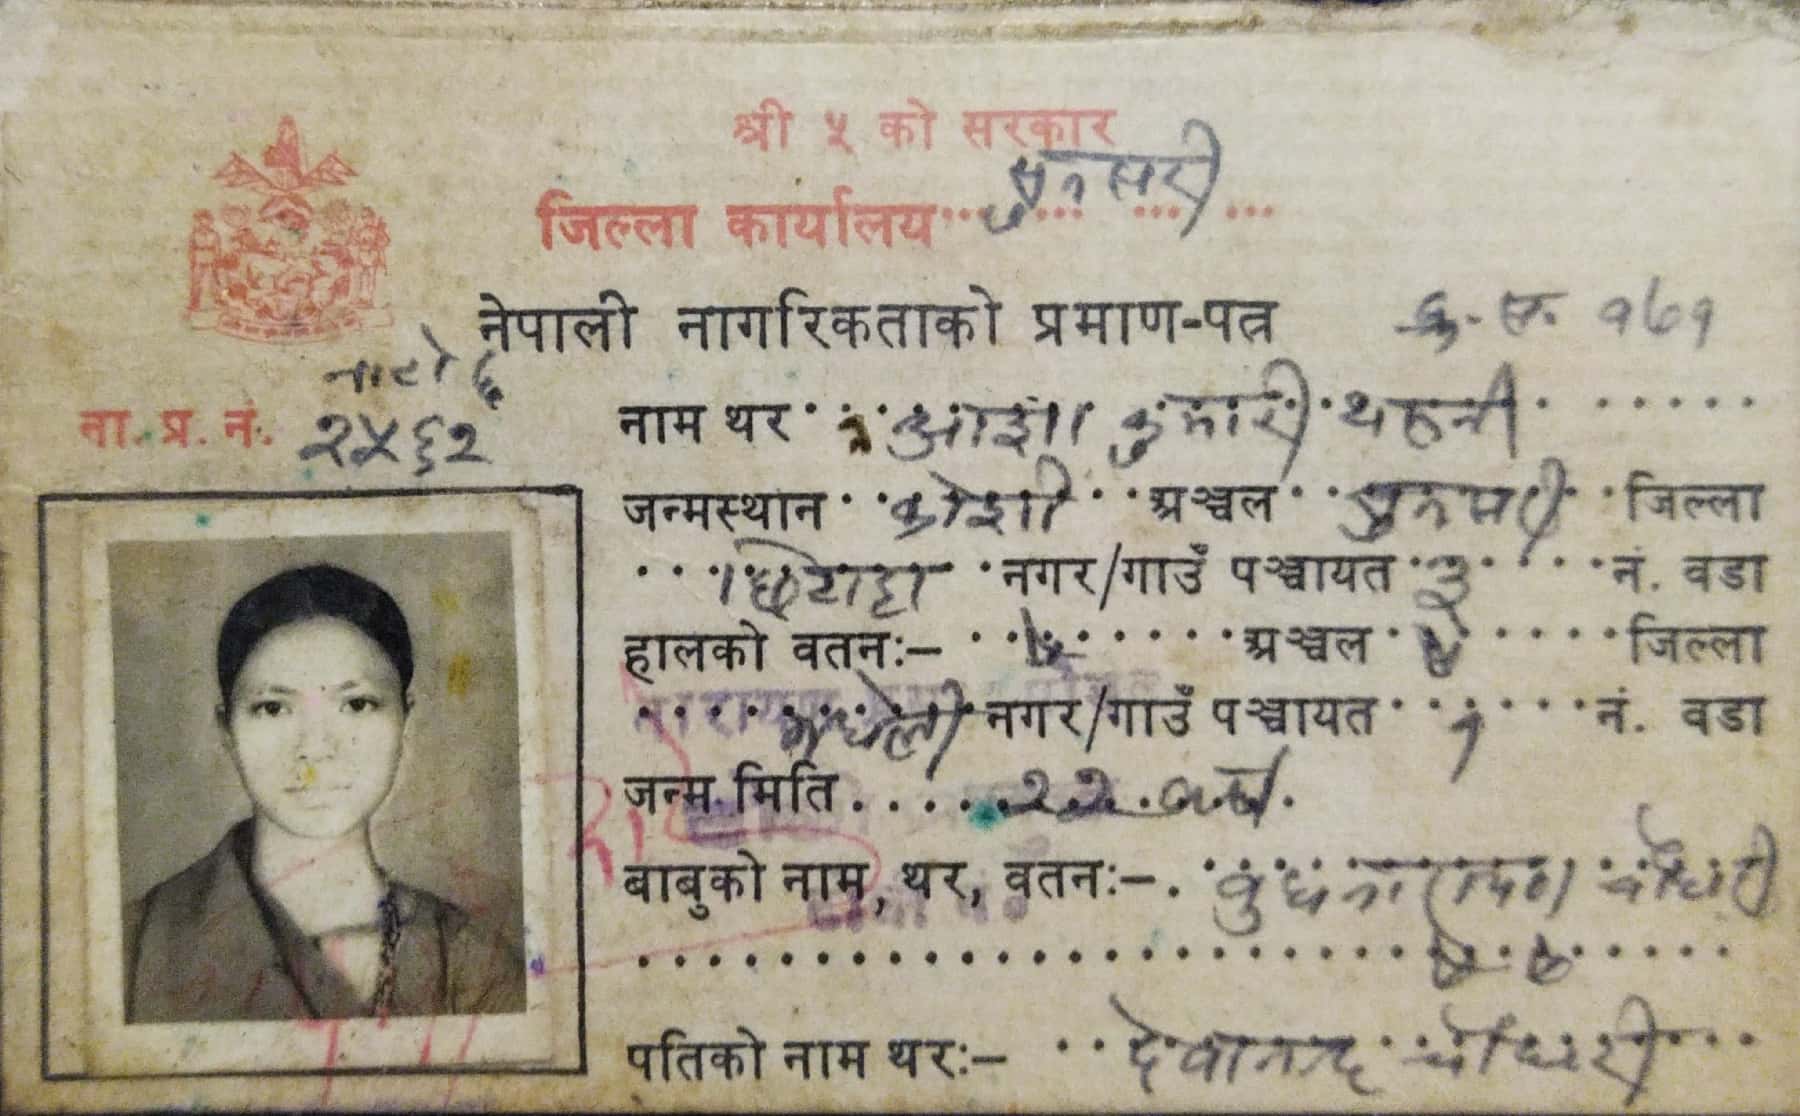 श्री ५ को सरकार
जिल्ला कार्यालय सुनसरी
नेपाली नागरिकताको प्रमाण-पत्र १७१
ना. प्र. नं. २५६२
नाम थर कुमारी थरुनी
जन्मस्थान कोशी अञ्चल सुनसरी जिल्ला
नगर/गाउँ पञ्चायत ३ नं. वडा
हालको वतनः- अञ्चल जिल्ला
नगर/गाउँ पञ्चायत १ नं. वडा
जन्म मिति २२ वर्ष
बाबुको नाम, थर, वतनः- चौधरी
पतिको नाम थरः- देवानन्द चौधरी